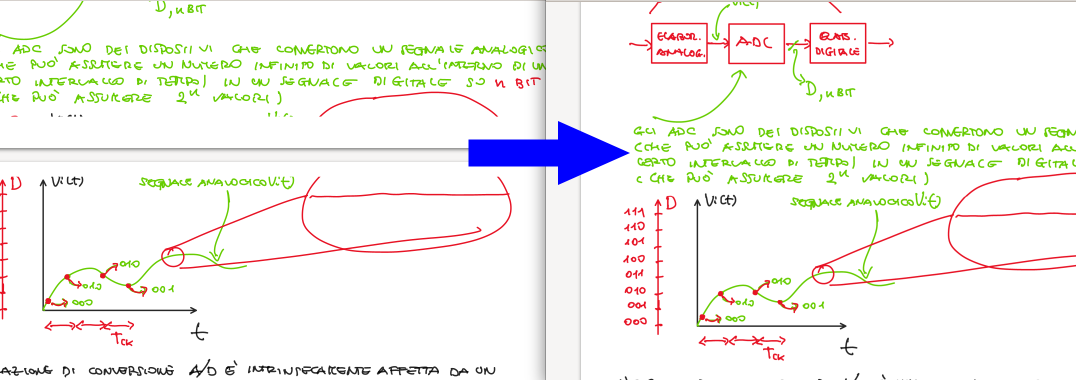 D, n BIT
ADC SONO DEI DISPOSITIVI CHE CONVERTONO UN SEGNALE ANALOGICO
CHE PUÒ ASSUMERE UN NUMERO INFINITO DI VALORI ALL'INTERNO DI UN
CERTO INTERVALLO DI TEMPO) IN UN SEGNALE DIGITALE SU n BIT
CHE PUÒ ASSUMERE 2^n VALORI)
D
Vi(t)
SEGNALE ANALOGICO Vi(t)
010
010
001
000
TCK
t
AZIONE DI CONVERSIONE A/D E' INTRINSECAMENTE AFFETTA DA UN
Vi(t)
ELABOR. ANALOG.
ADC
ELAB. DIGITALE
D, n BIT
GLI ADC SONO DEI DISPOSITIVI CHE CONVERTONO UN SEGN
(CHE PUÒ ASSUMERE UN NUMERO INFINITO DI VALORI ALL
CERTO INTERVALLO DI TEMPO) IN UN SEGNALE DIGITAL
(CHE PUÒ ASSUMERE 2^n VALORI)
D
Vi(t)
SEGNALE ANALOGICO Vi(t)
111
110
101
100
011
010
001
000
010
010
001
000
TCK
t